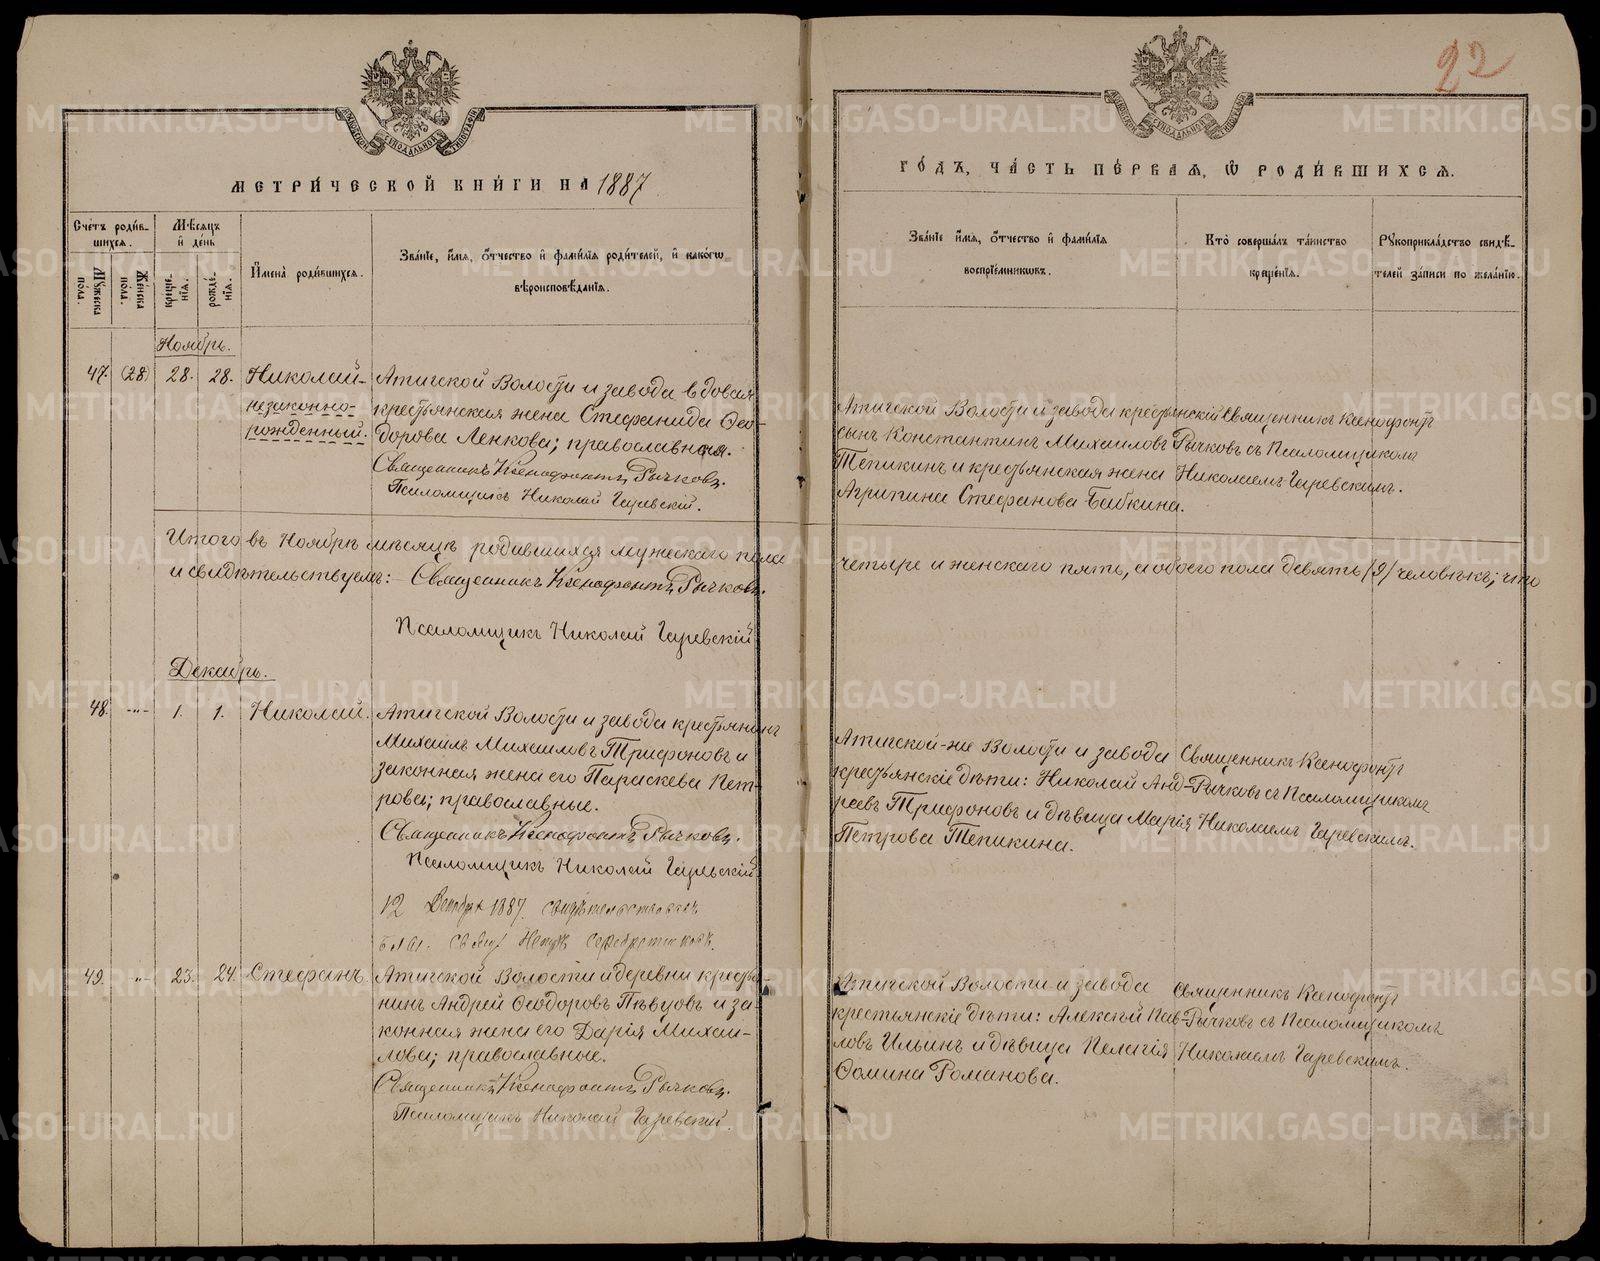 22
МЕТРИ́ЧЕСКОЙ КНИ́ГИ НА 1887
ГО́ДЪ, ЧА́СТЬ ПЕ́РВАѦ, Ѡ҆ РОДИ́ВШИХСѦ.
Сче́тъ роди́в-
шихся.
Мꙋжеска
по́ла.
Же́нска
по́ла.
Мѣ́сяцъ
и҆ де́нь
креще́-
нїя.
рожде́-
нїя.
И҆мена̀ роди́вшихся.
Зва́нїе, и҆́мя, ѻ҆́тчество и҆ фами́лїя роди́телей, и҆ како́гѡ
вѣроисповѣ́данїя.
Зва́нїе и҆́мя, ѻ҆́тчество и҆ фами́лїя
воспрїе́мникѡвъ.
Кто̀ соверша́лъ та́инство
креще́нїя.
Рꙋкоприкла́дство свидѣ́-
телей за́писи по жела́нїю.
Ноябрь.
47. (28) 28. 28. Николай-
незаконно-
рожденный.
Атигской Волости и завода вдовая
крестьянская жена Стефанида Ѳео-
дорова Ленкова; православная.
Священникъ Ксенофонтъ Рычковъ.
Псаломщикъ Николай Гаревскій.
Атигской Волости и завода крестьянскій
сынъ Константинъ Михаиловъ
Тепикинъ и крестьянская жена
Агрипина Стефанова Бабкина.
Священникъ Ксенофонтъ
Рычковъ съ Псаломщикомъ
Николаемъ Гаревскимъ.
Итого въ Ноябрѣ мѣсяцѣ родившихся мужескаго пола
четыре и женскаго пять, и обоего пола девять (9) человѣкъ; что
и свидѣтельствуемъ:- Священникъ Ксенофонтъ Рычковъ.
Псаломщикъ Николай Гаревскій
Декабрь.
48. -"- 1. 1. Николай.
Атигской Волости и завода крестьянинъ
Михаилъ Михаиловъ Трифоновъ и
законная жена его Параскева Пет-
рова; православные.
Священникъ Ксенофонтъ Рычковъ.
Псаломщикъ Николай Гаревскій
12 Декабря 1887. свидѣтельствовалъ
Благ. свящ.
Атигской-же Волости и завода
крестьянскіе дѣти: Николай Анд-
реевъ Трифоновъ и дѣвица Марія
Петрова Тепикина.
Священникъ Ксенофонтъ
Рычковъ съ Псаломщикомъ
Николаемъ Гаревскимъ.
49. -"- 23. 24. Стефанъ.
Атигской Волости и деревни кресть-
нинъ Андрей Ѳеодоровъ Пѣвцовъ и за-
конная жена его Дарія Михаи-
лова; православные.
Священникъ Ксенофонтъ Рычковъ.
Псаломщикъ Николай Гаревскій.
Атигской Волости и завода
крестьянскіе дѣти: Алексѣй Пав-
ловъ Ильинъ и дѣвица Пелагія
Ѳомина Романова.
Священникъ Ксенофонтъ
Рычковъ съ Псаломщикомъ
Николаемъ Гаревскимъ.
METRIKI.GASO-URAL.RU